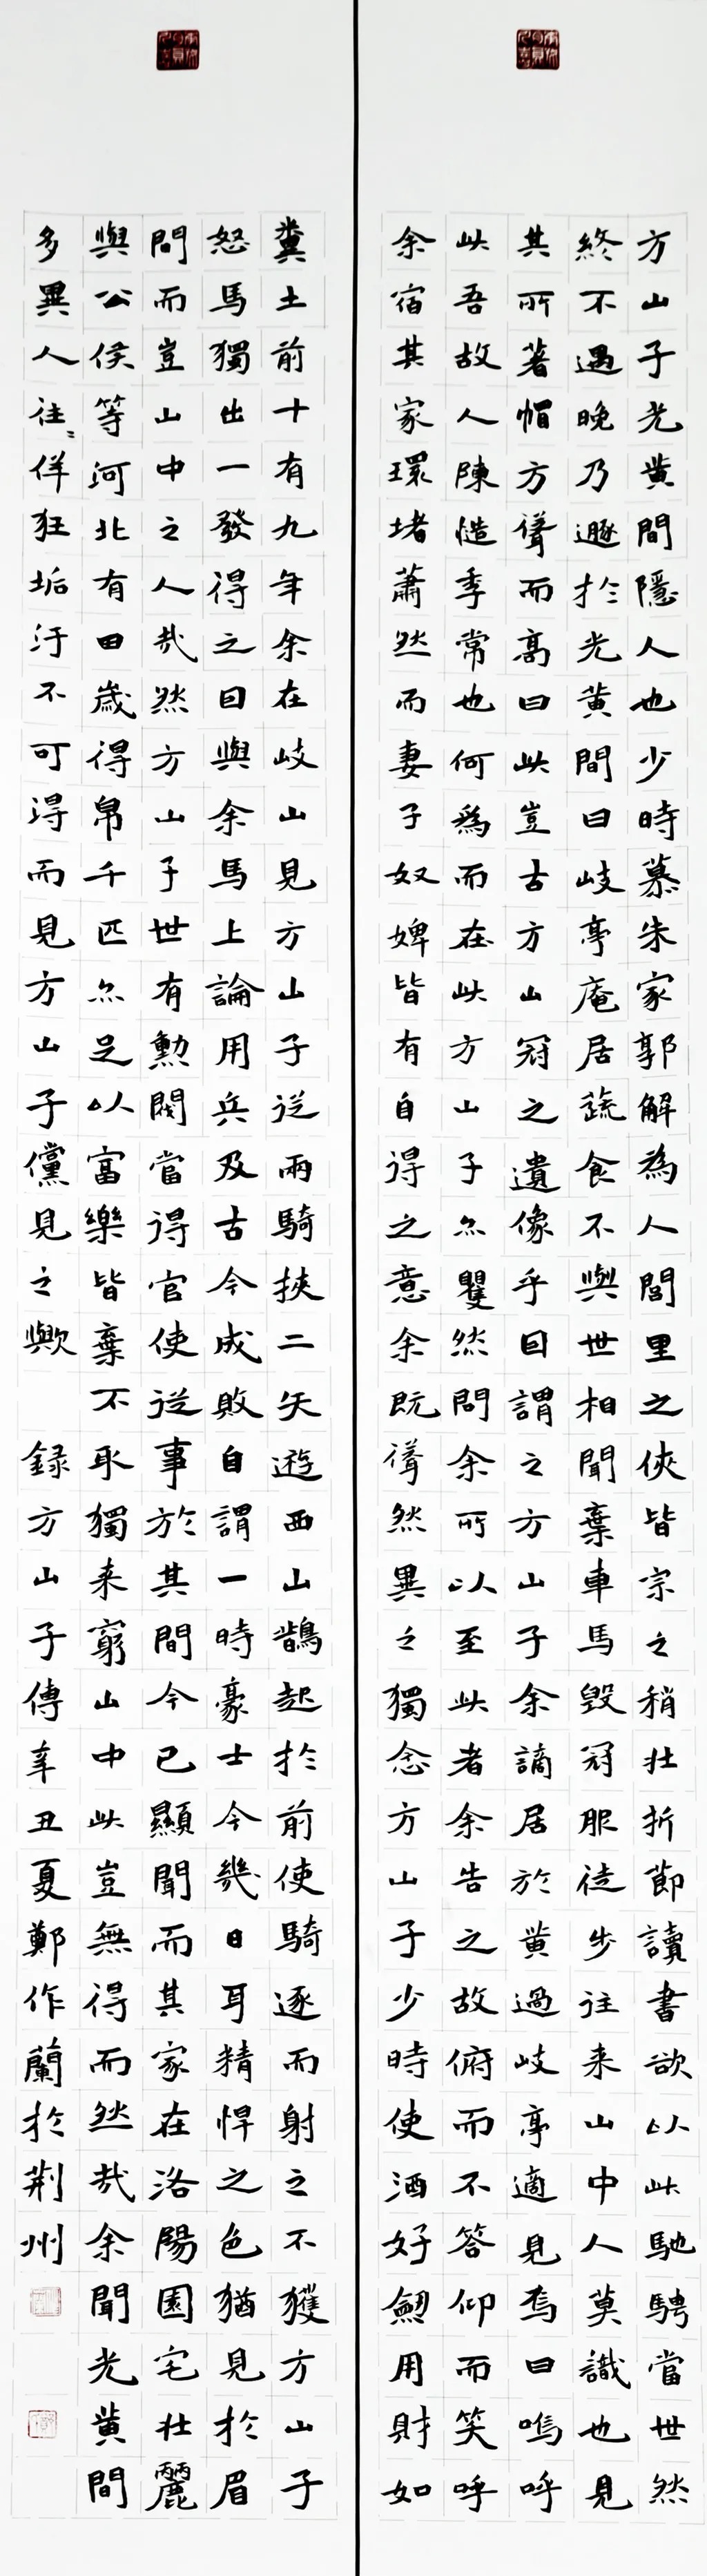 方山子光黄間隱人也少時慕朱家郭解為人閭里之俠皆宗之稍壯折節讀書欲以此馳騁當世然
終不遇晚乃遯於光黄間曰岐亭庵居蔬食不與世相聞棄車馬毀冠服徒步往来山中人莫識也見
其所著帽方聳而高曰此豈古方山冠之遺像乎因謂之方山子余謫居於黄過岐亭適見焉曰嗚呼
此吾故人陳慥季常也何為而在此方山子亦矍然問余所以至此者余告之故俯而不答仰而笑呼
余宿其家環堵蕭然而妻子奴婢皆有自得之意余既聳然異之獨念方山子少時使酒好劒用財如
糞土前十有九年余在岐山見方山子從兩騎挾二矢遊西山鵲起於前使騎逐而射之不獲方山子
怒馬獨出一發得之因與余馬上論用兵及古今成敗自謂一時豪士今幾日耳精悍之色猶見於眉
間而豈山中之人哉然方山子世有勲閥當得官使從事於其間今已顯聞而其家在洛陽園宅壯麗
與公侯等河北有田歲得帛千匹亦足以富樂皆棄不取獨来窮山中此豈無得而然哉余聞光黄間
多異人往々佯狂垢汙不可得而見方山子儻見之歟 録方山子傳辛丑夏鄭作蘭於荆州